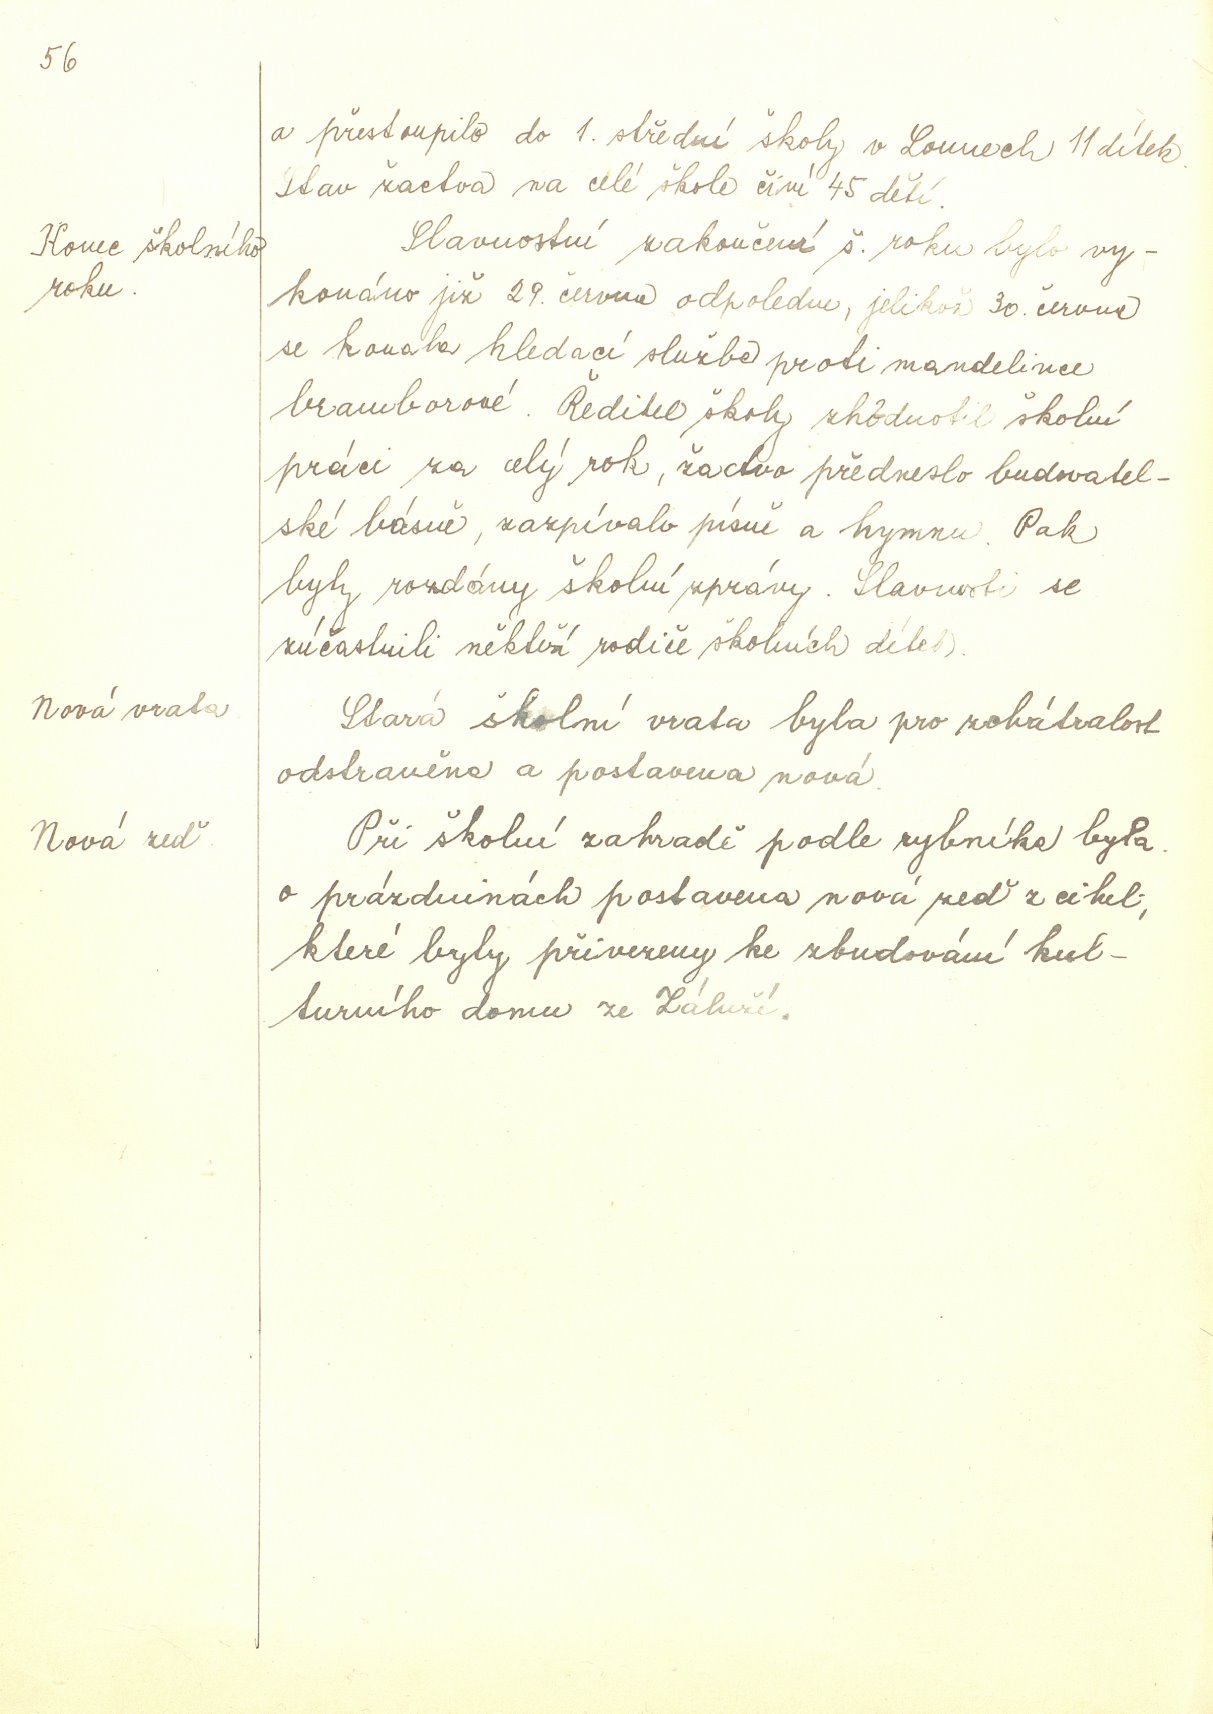 56
a přestoupilo do 1. střední školy v Lounech 11 dítek.
Stav žactva na celé škole činí 45 dětí.
Konec školního
roku.
Slavnostní zakončení š. roku bylo vy-
konáno již 29. června odpoledne, jelikož 30. června
se konala hledací služba proti mandelince
bramborové. Ředitel školy zhodnotil školní
práci za celý rok, žactvo předneslo budovatel-
ské básně, zazpívalo písně a hymnu. Pak
byly rozdány školní zprávy. Slavnosti se
zúčastnili někteří rodiče školních dítek.
Nová vrata
Stará školní vrata byla pro zchátralost
odstraněna a postavena nová.
Nová zeď.
Při školní zahradě podle rybníka byla
o prázdninách postavena nová zeď z cihel,
které byly přivezeny ke zbudování kul-
turního domu ze Záluží.